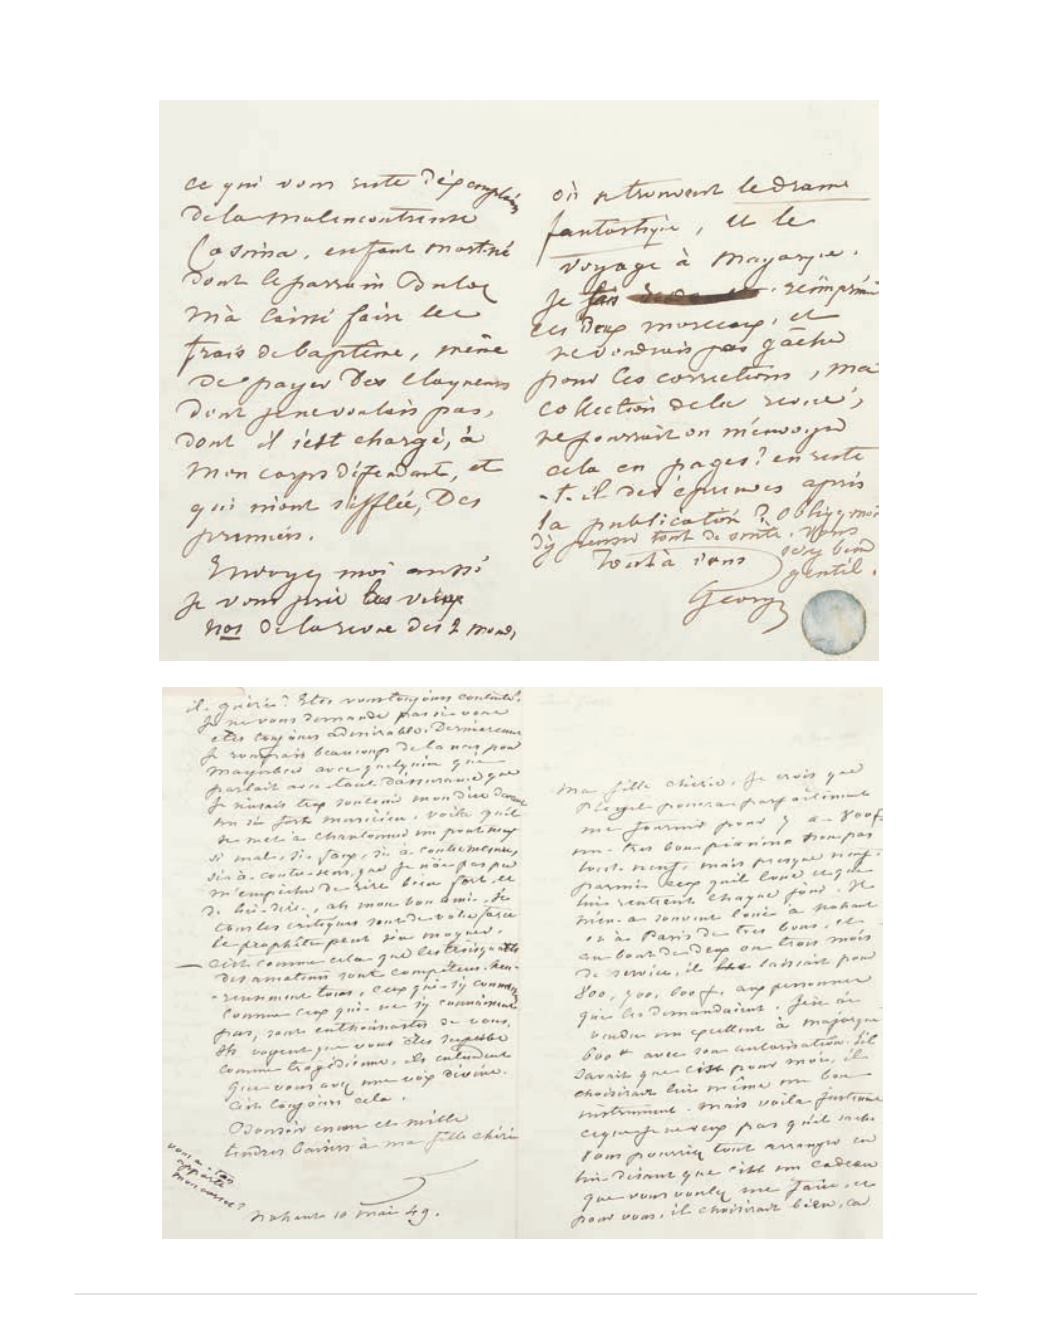 ce qui vous reste d'éxemplaires
de la malencontreuse
Cosima, enfant mort né
dont le parrain Buloz
m'a laissé faire les
frais de baptême, même
de payer des claqueurs
dont je ne voulais pas,
dont il s'est chargé, à
mon corps défendant, et
qui m'ont sifflée, des
premiers.
Envoyez moi aussi
je vous prie les vieux
nos de la revue des 2 mondes
où se trouvent le drame
fantastique, et le
voyage à Mayorque.
Je fais réimprimer
ces deux morceaux, et
ne voudrais pas gâcher
pour les corrections, ma
collection de la revue,
ne pourrait on m'envoyer
cela en pages? en reste
-t-il des épreuves après
la publication? Obligez moi
d'y penser tout de suite. Vous
serez bien
gentil.
Tout à vous
George
il guéri? Etes vous toujours contente?
Je ne vous demande pas si vous
etes toujours admirable. Dernièrement
je rompais beaucoup de lances pour
Mayerbeer avec quelqu'un qui
parlait avec tant d'assurance que
je n'osais trop soutenir mon dire devant
un si fort musicien. voilà qu'il
se met à chantonner un pont neuf
si mal, si faux, si à contremesure,
si à contre-sens, que je n'ai pas pu
m'empêcher de rire bien fort, et
de lui dire, ah mon bon ami, si
tous les critiques sont de votre force
le prophète peut s'en moquer.
C'est comme cela que les trois quarts
des amateurs sont compétens. heu-
-reusement tous, ceux qui s'y connaissent
comme ceux qui ne s'y connaissent
pas, sont enthousiastes de vous.
Ils voyent que vous êtes superbe
comme tragédienne, ils entendent
que vous avez une voix divine.
C'est toujours cela.
Bonsoir encore et mille
tendres baisers à ma fille chérie
vous a-t-on
apporté
mon
Nohant 10 mai 49.
Ma fille chérie, Je crois que
Pleyel pourra parfaitement
me fournir pour 7 à 800f
un très bon pianino non pas
tout neuf, mais presque neuf,
parmi ceux qu'il loue et qui
lui rentrent chaque jour. Il
m'en a souvent loué à Nohant
et à Paris de très bons, et
au bout de deux ou trois mois
de service, il les laissait pour
800, 700, 600f, aux personnes
qui les demandaient. J'en ai
vendu un excellent à majorque
600f avec son autorisation. S'il
savait que c'est pour moi, il
choisirait lui même un bon
instrument. Mais voila justement
ce que je ne veux pas qu'il sache
Vous pourriez tout arranger en
lui disant que c'est un cadeau
que vous voulez me faire, et
pour vous, il choisirait bien, car